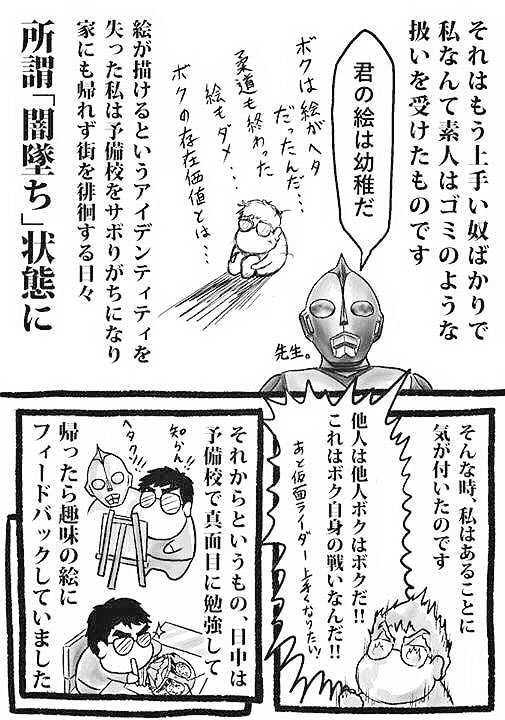 それはもう上手い奴ばかりで
私なんて素人はゴミのような
扱いを受けたものです
君の絵は幼稚だ
先生。
ボクは絵がヘタ
だったんだ…
柔道も終わった
絵もダメ…
ボクの存在価値とは…
絵が描けるというアイデンティティを
失った私は予備校をサボりがちになり
家にも帰れず街を徘徊する日々
所謂「闇墜ち」状態に
そんな時、私はあることに
気が付いたのです
他人は他人ボクはボクだ!!
これはボク自身の戦いなんだ!!
あと仮面ライダー上手くなりたい!
それからというもの、日中は
予備校で真面目に勉強して
知らん!!
ヘタクソ!!
帰ったら趣味の絵に
フィードバックしていました